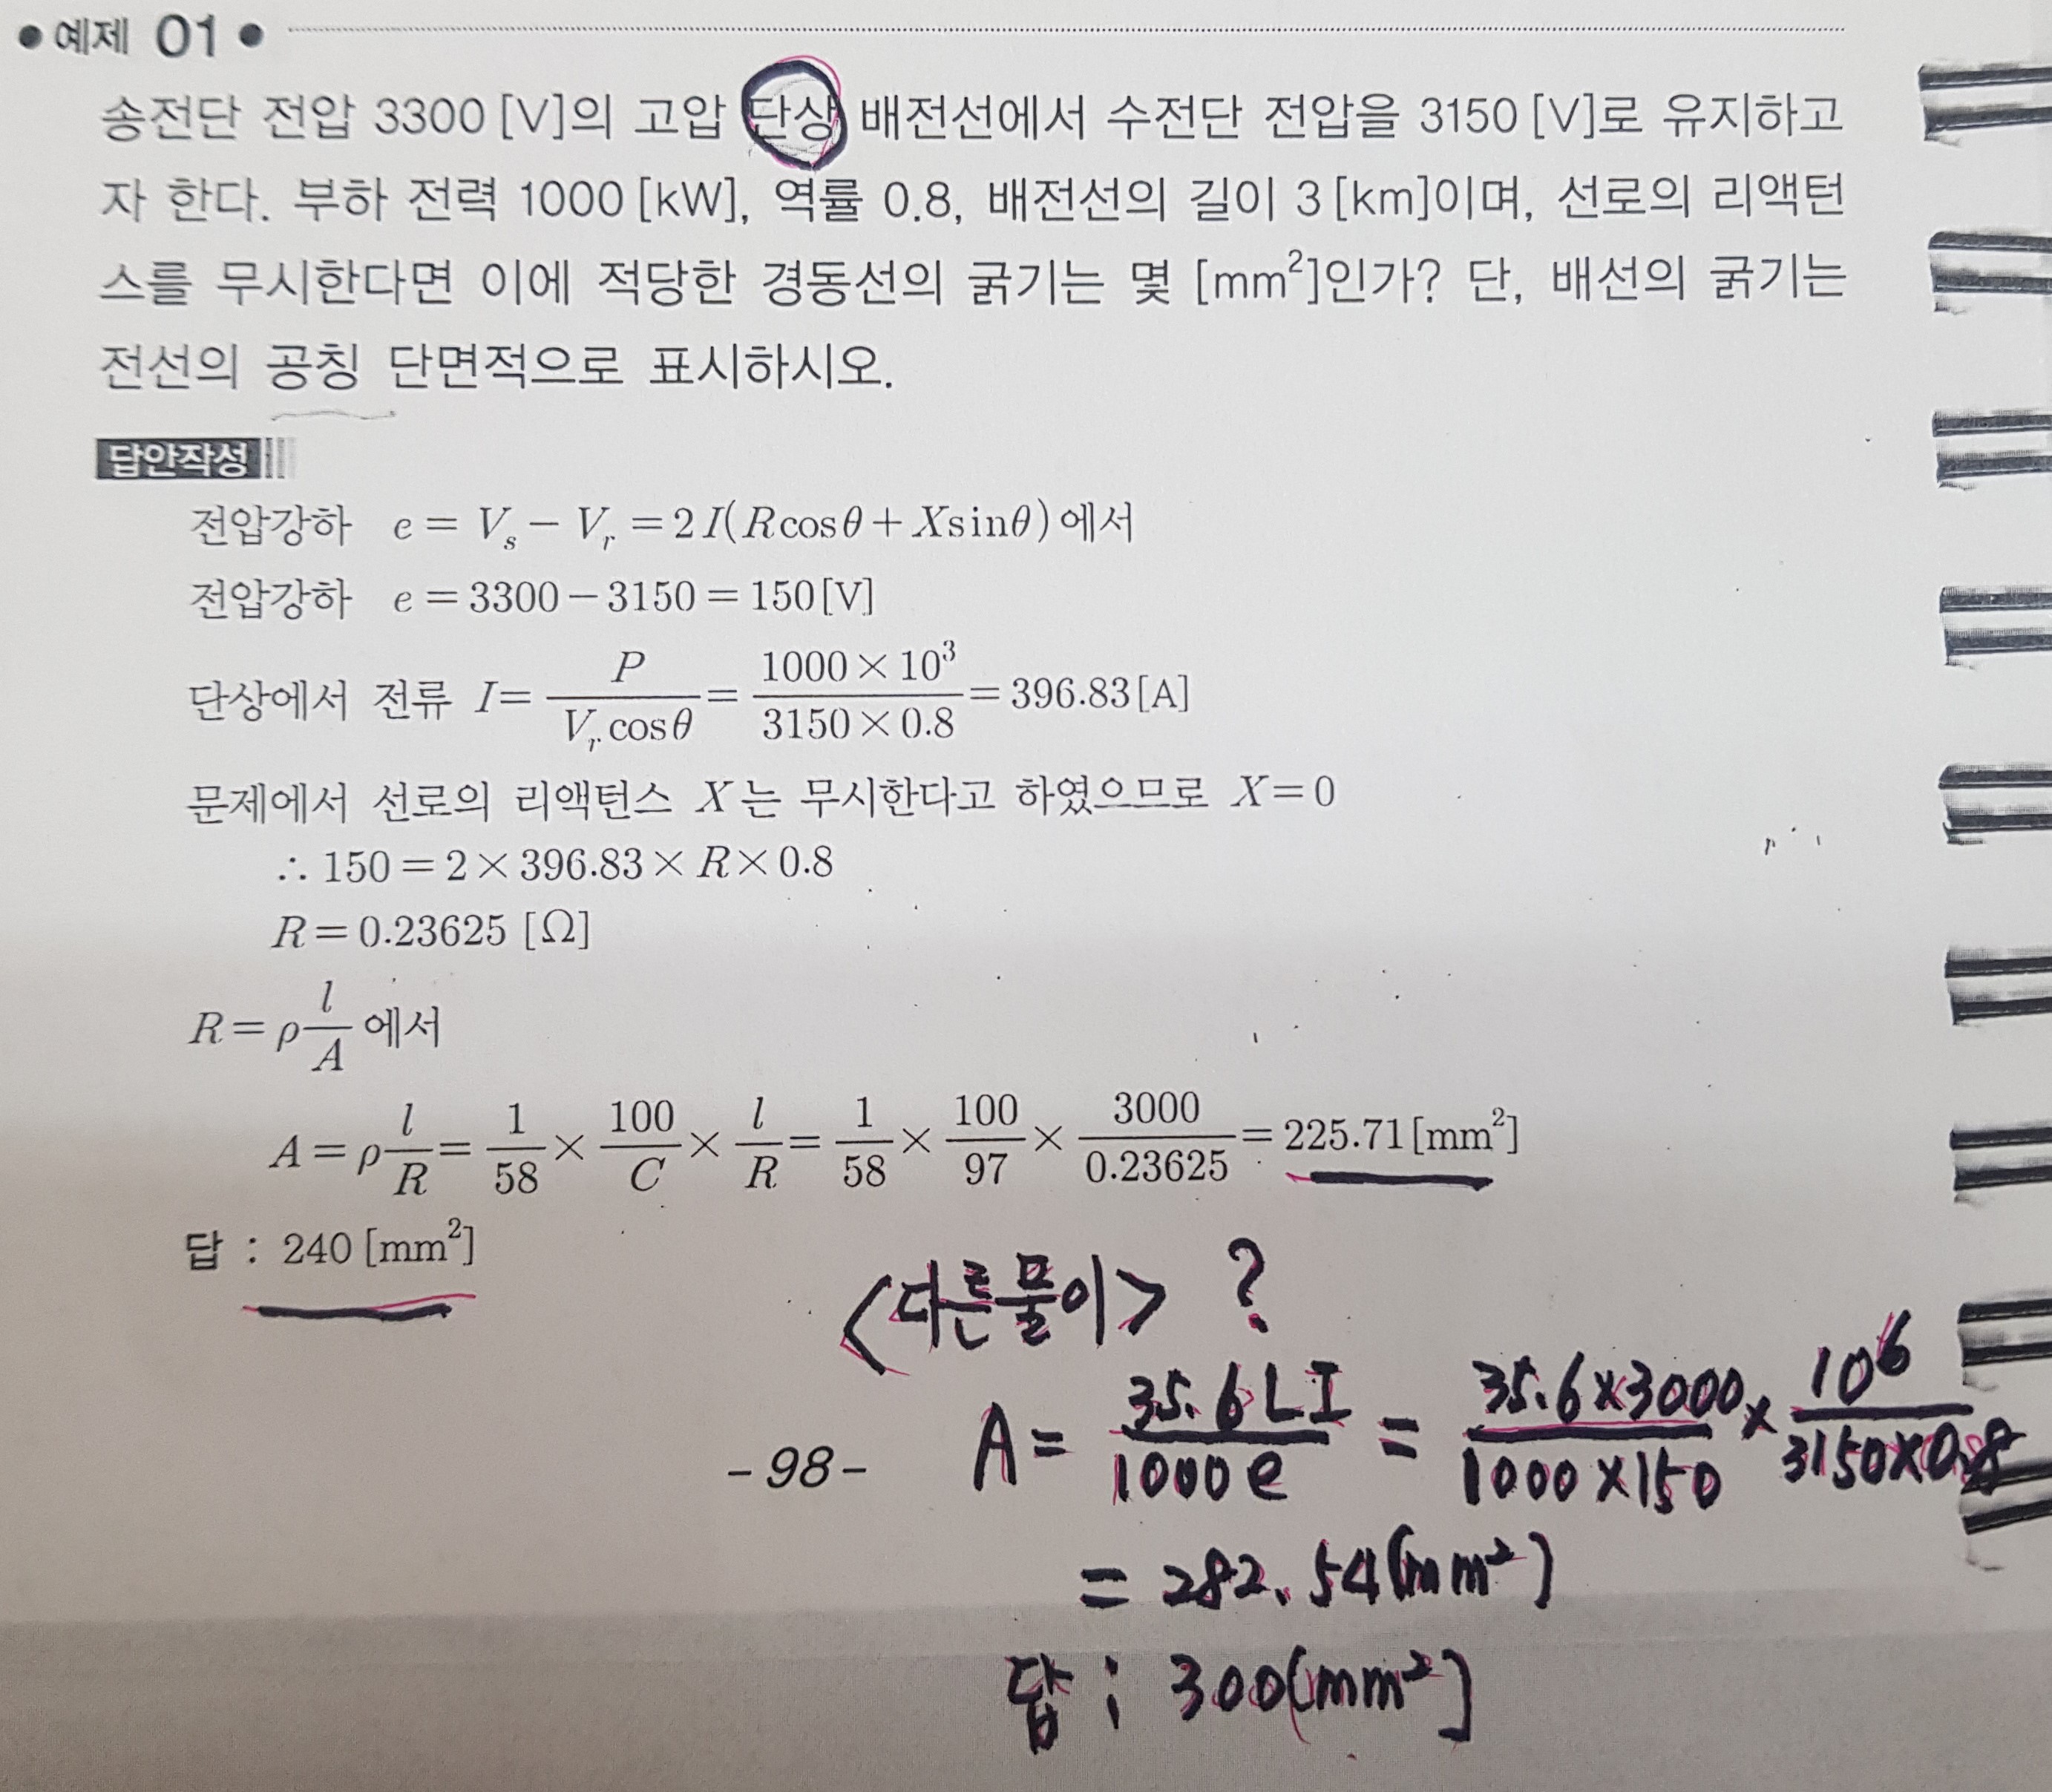 • 예제 01 •
송전단 전압 3300 [V]의 고압 단상 배전선에서 수전단 전압을 3150 [V]로 유지하고
자 한다. 부하 전력 1000 [kW], 역률 0.8, 배전선의 길이 3 [km]이며, 선로의 리액턴
스를 무시한다면 이에 적당한 경동선의 굵기는 몇 [mm²]인가? 단, 배선의 굵기는
전선의 공칭 단면적으로 표시하시오.
답안작성
전압강하 e = V_s − V_r = 2I(Rcosθ + Xsinθ)에서
전압강하 e = 3300 − 3150 = 150[V]
단상에서 전류 I = P / (V_r cosθ) = (1000 × 10³) / (3150 × 0.8) = 396.83[A]
문제에서 선로의 리액턴스 X는 무시한다고 하였으므로 X = 0
∴ 150 = 2 × 396.83 × R × 0.8
R = 0.23625 [Ω]
R = ρ l/A 에서
A = ρ l/R = 1/58 × 100/C × l/R = 1/58 × 100/97 × 3000/0.23625 = 225.71[mm²]
답 : 240 [mm²]
<다른풀이> ?
A = 35.6LI / 1000e = (35.6×3000) / (1000×150) × 10⁶ / (3150×0.8)
= 282.54[mm²]
답 : 300[mm²]
- 98 -